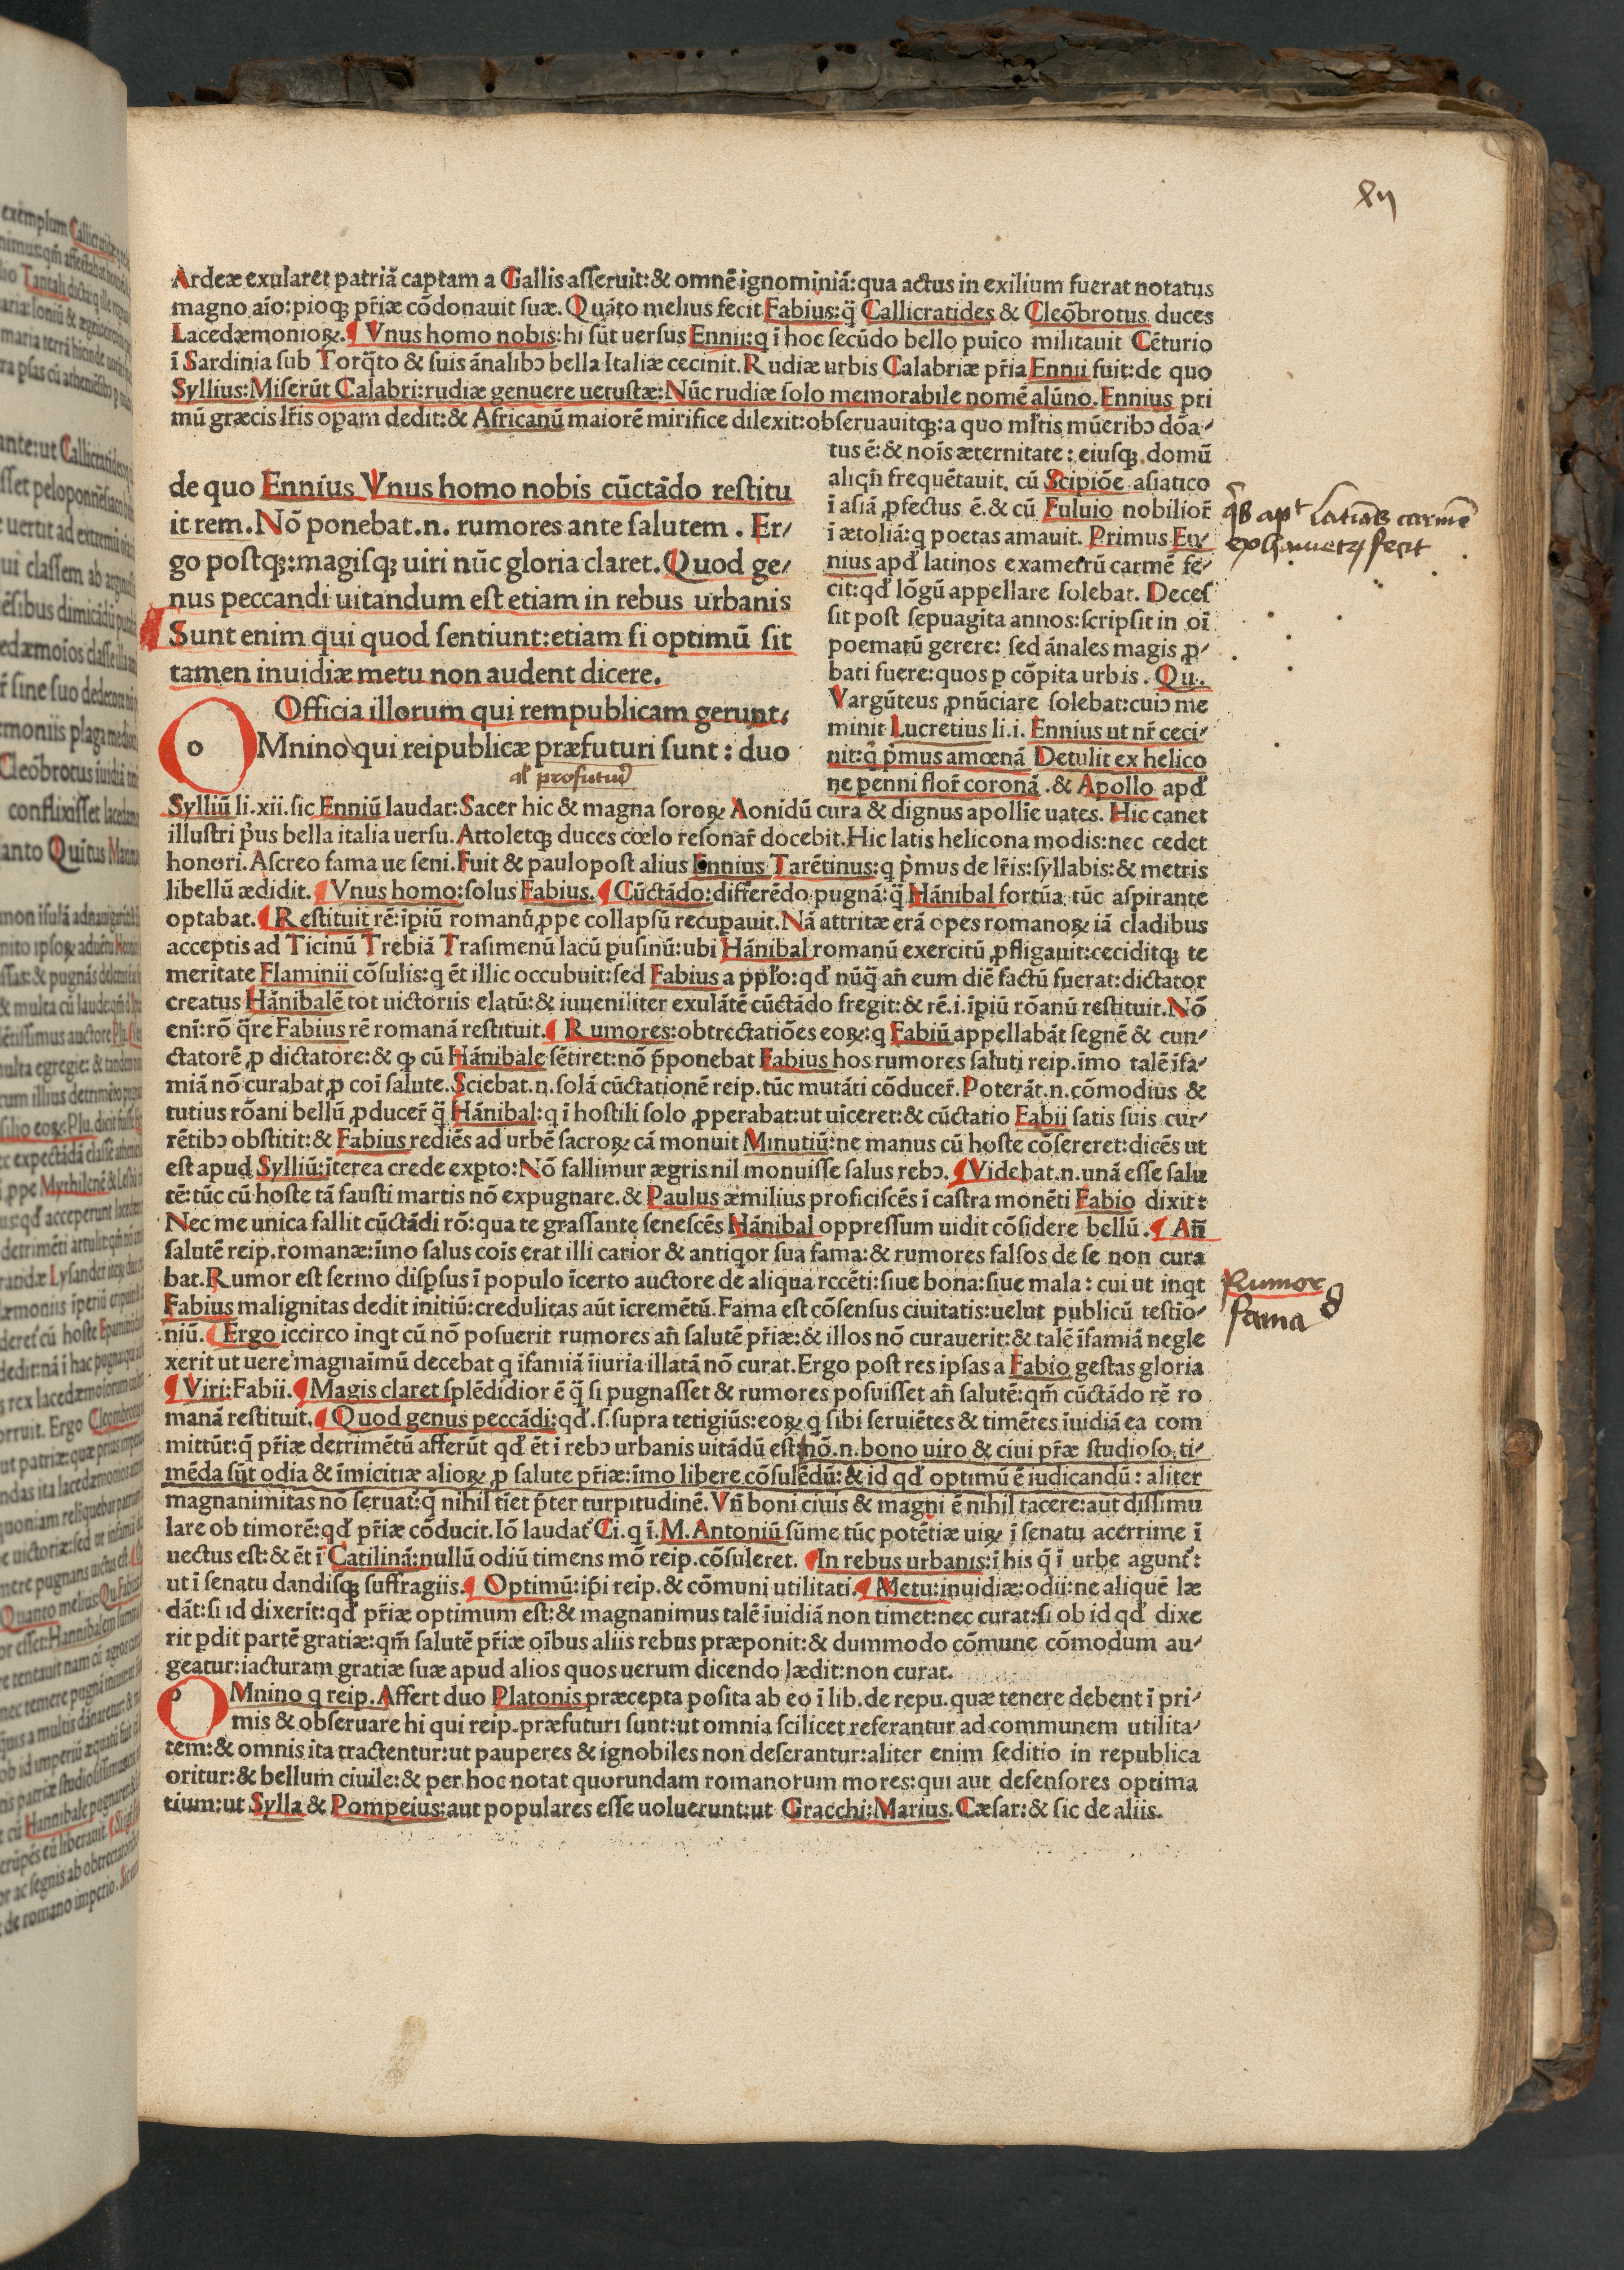 xij
Ardeæ exularet patriā captam a Gallis asseruit:& omnē ignominiā:qua actus in exilium fuerat notatus
magno aīo:pioqꝫ pr̄iæ cōdonauit suæ. Quāto melius fecit Fabius:q̄ Callicratides & Cleōbrotus duces
Lacedæmonioꝝ. ¶ Vnus homo nobis:hi sūt uersus Ennii:q ī hoc secūdo bello puīco militauit Cēturio
ī Sardinia sub Torq̄to & suis ānalibꝰ bella Italiæ cecinit. Rudiæ urbis Calabriæ pr̄ia Ennii fuit:de quo
Syllius:Miserūt Calabri:rudiæ genuere uetustæ:Nūc rudiæ solo memorabile nomē alūno. Ennius pri
mū græcis lr̄is opam dedit:& Africanū maiorē mirifice dilexit:obseruauitqꝫ:a quo ml̄tis mūeribꝰ dōa⸗
tus ē:& noīs æternitate: eiusqꝫ domū
aliqn̄ frequētauit. cū Scipiōe asiatico
ī asiā ꝓfectus ē. & cū Fuluio nobilior̄
ī ætoliā:q poetas amauit. Primus En⸗
nius apđ latinos exametrū carmē fe⸗
cit:qđ lōgū appellare solebat. Deces
sit post sepuagita annos:scripsit in oī
poematū gerere: sed ānales magis ꝓ⸗
bati fuere:quos ꝑ cōpita urbis. Qu.
Vargūteus ꝓnūciare solebat:cuiꝰ me
minit Lucretius li.i. Ennius ut nr̄ ceci⸗
nit:q̄ p̄mus amœnā Detulit ex helico
ne penni flor̄ coronā .& Apollo apđ
de quo Ennius Vnus homo nobis cūctādo restitu
it rem. Nō ponebat.n. rumores ante salutem . Er⸗
go postqꝫ:magisqꝫ uiri nūc gloria claret. Quod ge⸗
nus peccandi uitandum est etiam in rebus urbanis
Sunt enim qui quod sentiunt:etiam si optimū sit
tamen inuidiæ metu non audent dicere.
Officia illorum qui rempublicam gerunt.
o
OMnino qui reipublicæ præfuturi sunt: duo
al' profuturi
Sylliū li.xii.sic Enniū laudat:Sacer hic & magna soroꝝ Aonidū cura & dignus apollīe uates. Hic canet
illustri p̄us bella italia uersu. Attoletqꝫ duces cœlo resonar̄ docebit.Hic latis helicona modis:nec cedet
honori. Ascreo fama ue seni. Fuit & paulopost alius Ennius Tarētinus:q p̄mus de lr̄is:syllabis:& metris
libellū ædidit. ¶ Vnus homo:solus Fabius. ¶ Cūctādo:differēdo pugnā:q̄ Hānibal fortūa tūc aspirante
optabat. ¶ Restituit rē:īpiū romanū ꝓpe collapsū recuꝑauit. Nā attritæ erā opes romanoꝝ iā cladibus
acceptis ad Ticinū Trebiā Trasimenū lacū ꝑusinū:ubi Hānibal romanū exercitū ꝓfligauit:ceciditqꝫ te
meritate Flaminii cōsulis:q ēt illic occubuit:sed Fabius a ppl̄o:qđ nūq̄ an̄ eum diē factū fuerat:dictator
creatus Hānibalē tot uictoriis elatū:& iuueniliter exulātē cūctādo fregit:& rē.i.īpiū rōanū restituit. Nō
enī:rō q̄re Fabius rē romanā restituit. ¶ Rumores:obtrectatiōes eoꝝ:q Fabiū appellabāt segnē & cun⸗
ctatorē ꝓ dictatore:& qꝫ cū Hānibale sētiret:nō p̄ponebat Fabius hos rumores saluti reip.īmo talē īfa⸗
miā nō curabat ꝓ coī salute. Sciebat.n.solā cūctationē reip.tūc mutāti cōducer̄. Poterāt.n.cōmodius &
tutius rōani bellū ꝓducer̄ q̄ Hānibal:q ī hostili solo ꝓperabat:ut uīceret:& cūctatio Fabii satis suis cur⸗
rētibꝰ obstitit:& Fabius rediēs ad urbē sacroꝝ cā monuit Minutiū:ne manus cū hoste cōsereret:dicēs ut
est apud Sylliū:īterea crede expto:Nō fallimur ægris nil monuisse salus rebꝰ. ¶ Videbat.n.unā esse salu
tē:tūc cū hoste tā fausti martis nō expugnare. & Paulus æmilius proficiscēs ī castra monēti Fabio dixit:
Nec me unica fallit cūctādi rō:qua te grassante senescēs Hānibal oppressum uidit cōsidere bellū. ¶ An̄
salutē reip.romanæ:īmo salus coīs erat illi carior & antiqor sua fama:& rumores falsos de se non cura
bat. Rumor est sermo disꝑsus ī populo īcerto auctore de aliqua rccēti:siue bona:siue mala: cui ut inqt
Fabius malignitas dedit initiū:credulitas aūt īcremētū. Fama est cōsensus ciuitatis:uelut publicū testio⸗
niū. ¶ Ergo iccirco inqt cū nō posuerit rumores an̄ salutē pr̄iæ:& illos nō curauerit:& talē īfamiā negle
xerit ut uere magnaīmū decebat q īfamiā īiuria illatā nō curat. Ergo post res ipsas a Fabio gestas gloria
¶ Viri:Fabii. ¶ Magis claret splēdidior ē q̄ si pugnasset & rumores posuisset an̄ salutē:qm̄ cūctādo rē ro
manā restituit. ¶ Quod genus peccādi:qđ.s.supra tetigiūs:eoꝝ q sibi seruiētes & timētes īuidiā ea com
mittūt:q̄ pr̄iæ detrimētū afferūt qđ ēt ī rebꝰ urbanis uitādū est:nō.n.bono uiro & ciui pr̄æ studioso ti⸗
mēda sūt odia & īmicitiæ alioꝝ ꝓ salute pr̄iæ:īmo libere cōsulēdū:& id qđ optimū ē iudicandū: aliter
magnanimitas nō seruat:q̄ nihil tīet p̄ter turpitudinē. Vn̄ boni ciuis & magni ē nihil tacere:aut dissimu
lare ob timorē:qđ pr̄iæ cōducit. Iō laudat Ci.q ī.M.Antoniū sūme tūc potētiæ uiꝝ ī senatu acerrime ī
uectus est:& ēt ī Catilinā:nullū odiū timens mō reip.cōsuleret. ¶ In rebus urbanis:ī his q̄ ī urbe agunt:
ut ī senatu dandisqꝫ suffragiis. ¶ Optimū:ip̄i reip.& cōmuni utilitati. ¶ Metu:inuidiæ:odii:ne aliquē læ
dāt:si id dixerīt:qđ pr̄iæ optimum est:& magnanimus talē īuidiā non timet:nec curat:si ob id qđ dixe
rit ꝑdit partē gratiæ:qm̄ salutē pr̄iæ oībus aliis rebus præponit:& dummodo cōmune cōmodum au⸗
geatur:iacturam gratiæ suæ apud alios quos uerum dicendo lædit:non curat.
OMnino q reip.Affert duo Platonis præcepta posita ab eo ī lib.de repu.quæ tenere debent ī pri⸗
mis & obseruare hi qui reip.præfuturi sunt:ut omnia scilicet referantur ad communem utilita⸗
tem:& omnis ita tractentur:ut pauperes & ignobiles non deserantur:aliter enim seditio in republica
oritur:& bellum ciuile:& per hoc notat quorundam romanorum mores:qui aut defensores optima
tium:ut Sylla & Pompeius:aut populares esse uoluerunt:ut Gracchi:Marius.Cæsar:& sic de aliis.
latinos carmē
fecit
Rumor
fama